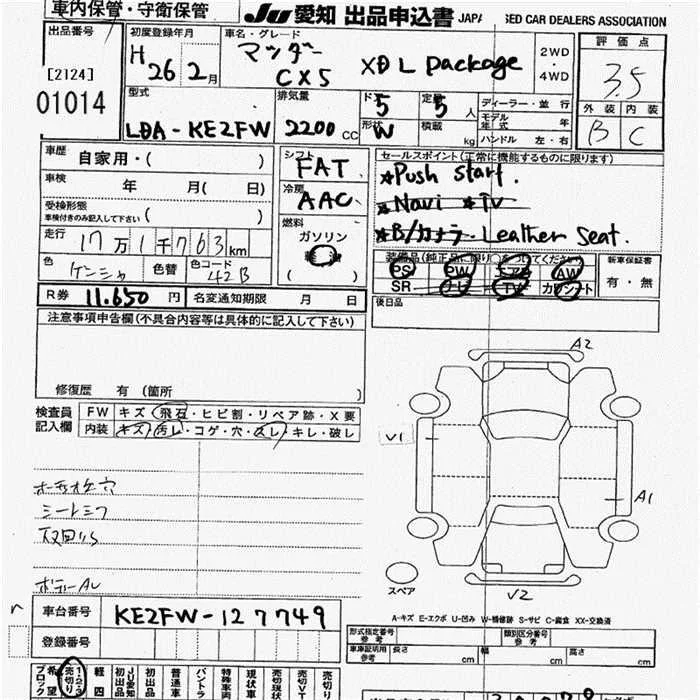 車内保管・守衛保管
JU 愛知 出品申込書 JAPA SED CAR DEALERS ASSOCIATION
出品番号
[2124]
01014
初度登録年月
H 26年 2月
車名・グレード
マツダー
CX5 XD L package
2WD
・
4WD
評価点
3.5
外装 内装
B C
型式
LDA-KE2FW
排気量
2200cc
ドア
5
形状
W
定員
5人
積載
kg
ディーラー・並行
モデル年式 年
ハンドル 左・右
車歴
自家用・( )
車検
年 月( 日)
受検形態
車検付きのみ記入して下さい ( )
走行
17万1千763km
色
ケンシャ
色替
色コード
42B
シフト
FAT
冷房
AAC
燃料
ガソリン
( )
セールスポイント(正常に機能するものに限ります)
*Push start.
*Navi *TV
*B/カメラ- Leather seat.
PS PW AW
SR ナビ TV
新車保証書
有・無
後日品
R券 11.650円
名変通知期限 月 日
注意事項申告欄(不具合内容等は具体的に記入して下さい)
修復歴 有 (箇所 )
検査員記入欄
FW キズ・飛石・ヒビ割・リペア跡・X要
内装 キズ・汚レ・コゲ・穴・スレ・キレ・破レ
シートシワ
ボディーAL
A2
V1
A1
V2
スペア
A-キズ E-エクボ U-凹み W-補修跡 S-サビ C-腐食 XX-交換済
車台番号
KE2FW-127749
登録番号
形式指定番号
参考
類別区分番号
参考
車庫証明用
参考
長さ cm
幅 cm
高さ cm
希望ブロック
売切り
1・2・3
軽四
JU愛知初出品
初出品
普通車
バントラ
特殊車両
現状車
売切現状
売切VT
売切り